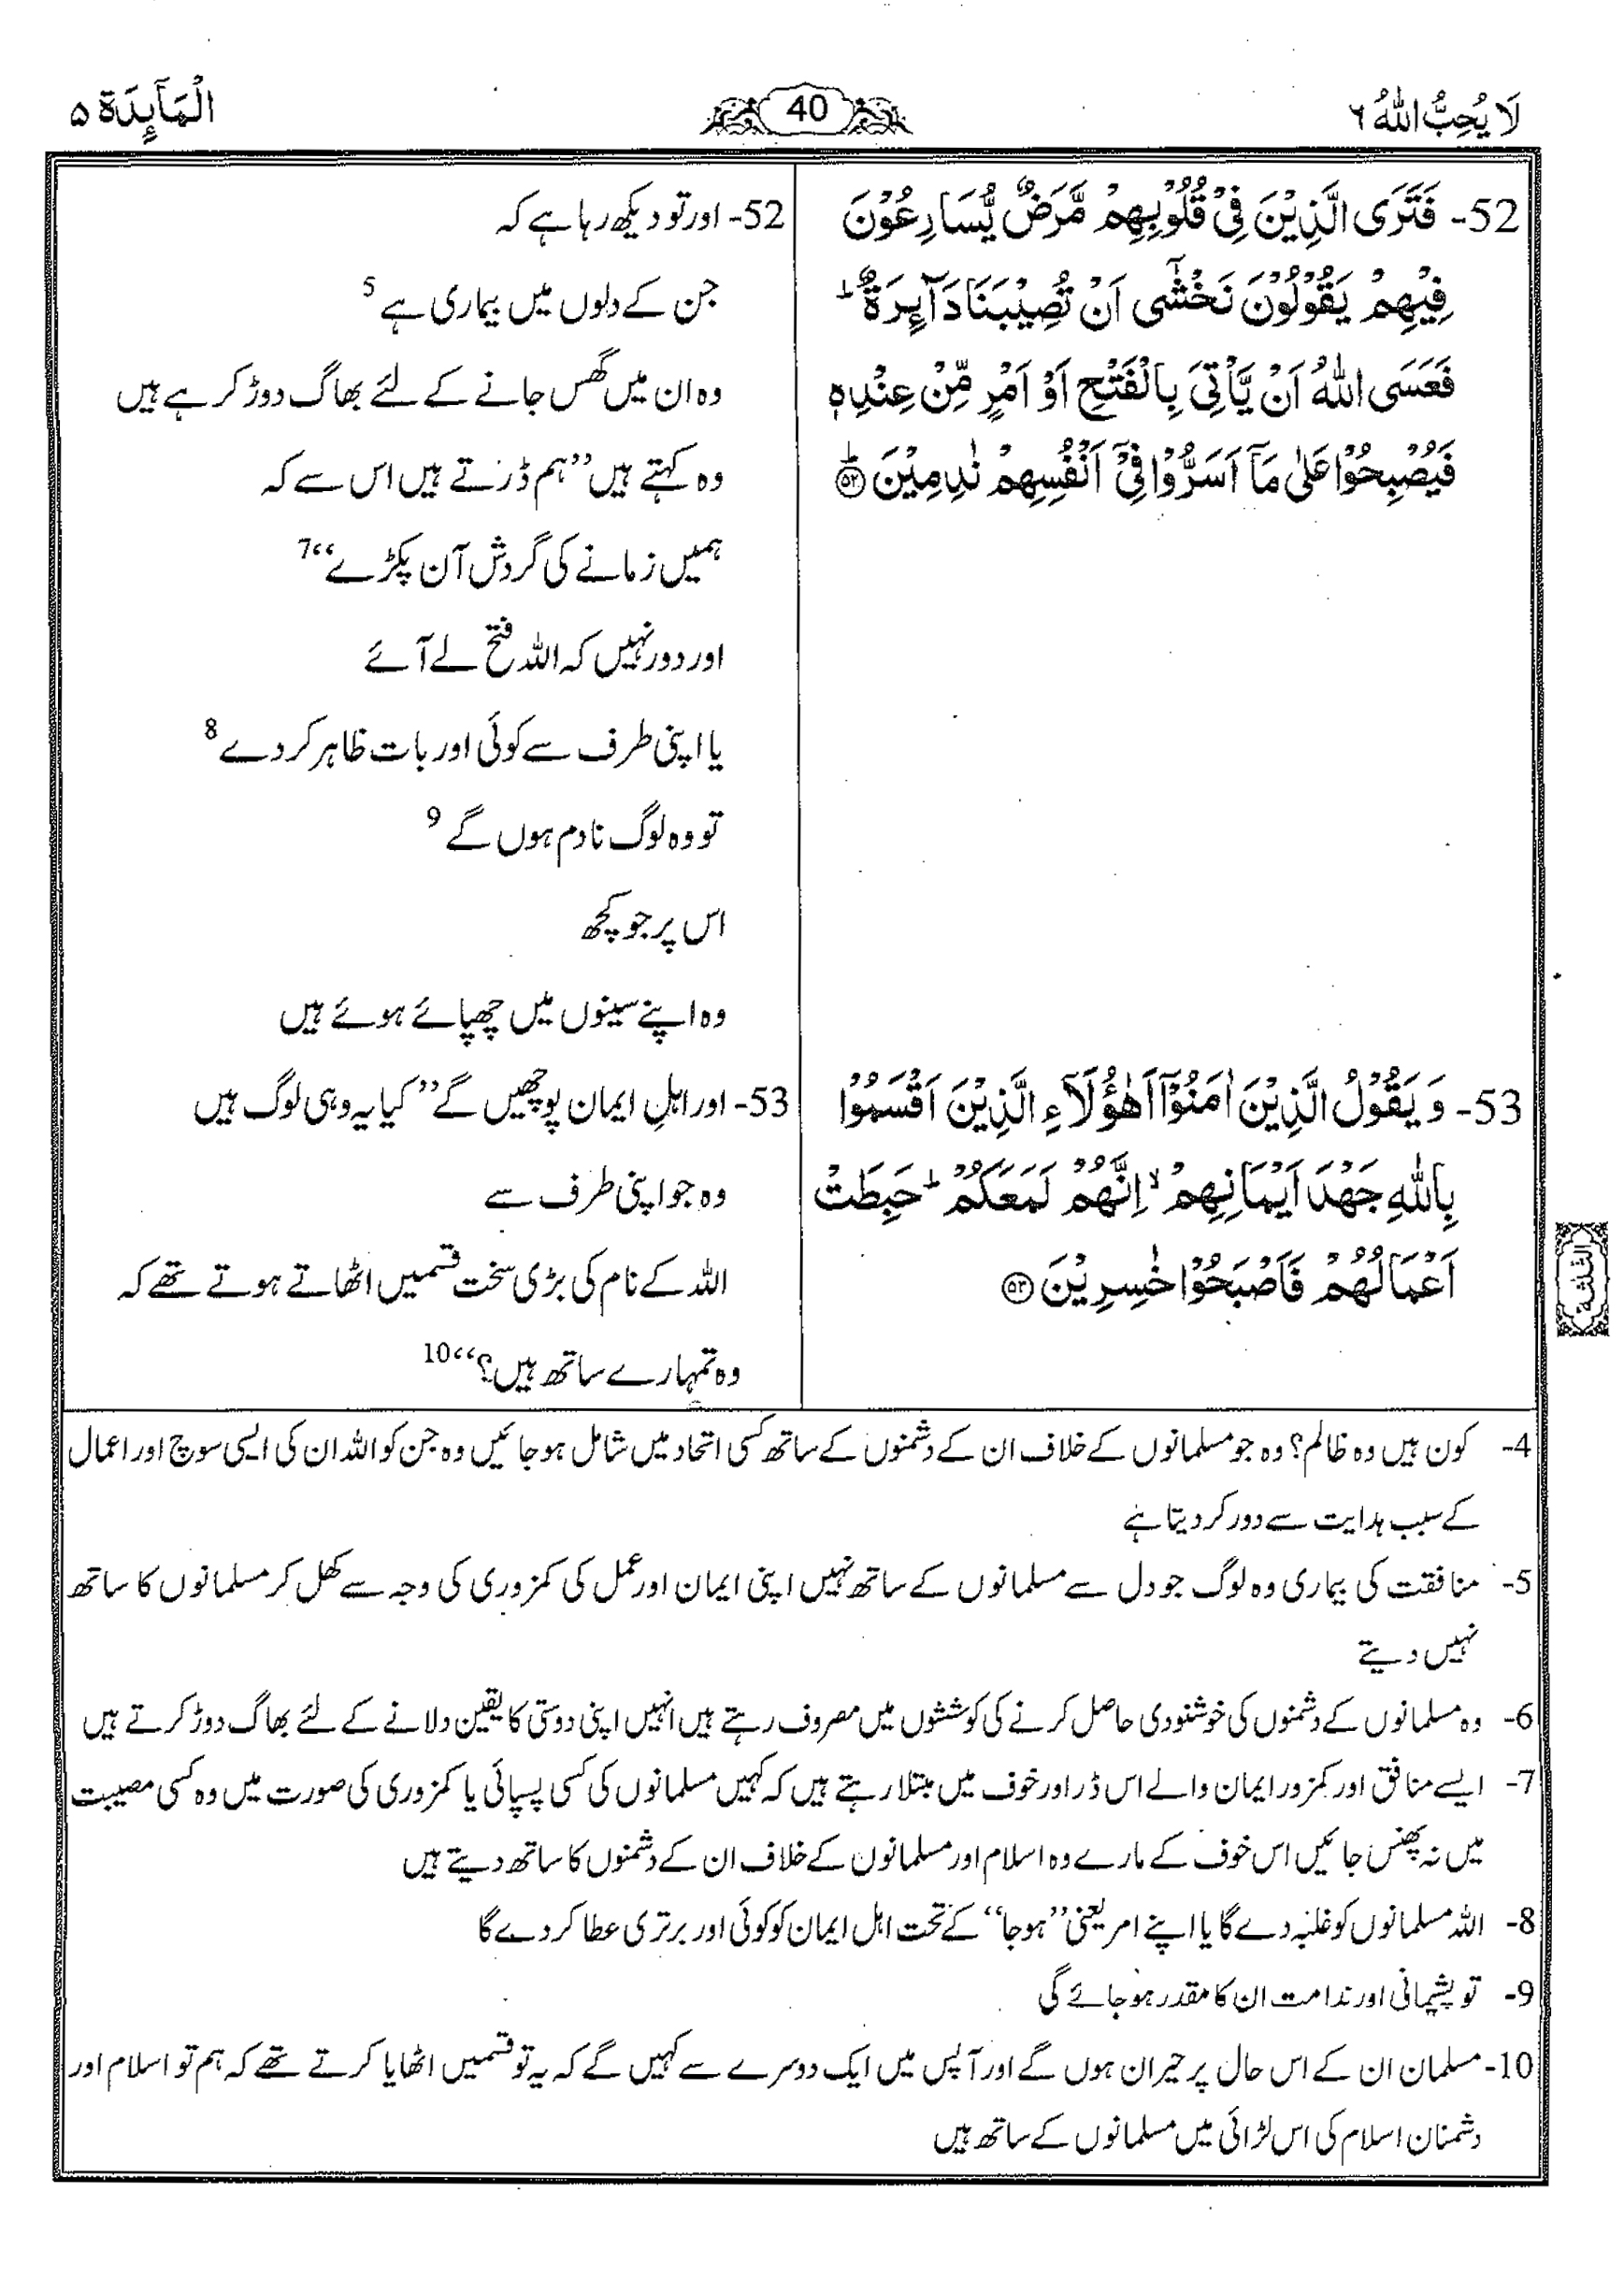 لَا يُحِبُّ اللهُ ٦
40
الْمَآئِدَة ۵
52- فَتَرَى الَّذِيْنَ فِىْ قُلُوْبِهِمْ مَّرَضٌ يُّسَارِعُوْنَ
فِيْهِمْ يَقُوْلُوْنَ نَخْشٰٓى اَنْ تُصِيْبَنَا دَآئِرَةٌ ؕ
فَعَسَى اللهُ اَنْ يَّاْتِىَ بِالْفَتْحِ اَوْ اَمْرٍ مِّنْ عِنْدِهٖ
فَيُصْبِحُوْا عَلٰى مَآ اَسَرُّوْا فِىْٓ اَنْفُسِهِمْ نٰدِمِيْنَ ؕ ﴿۵۲﴾
53- وَ يَقُوْلُ الَّذِيْنَ اٰمَنُوْٓا اَهٰٓؤُلَآءِ الَّذِيْنَ اَقْسَمُوْا
بِاللهِ جَهْدَ اَيْمَانِهِمْ ۙ اِنَّهُمْ لَمَعَكُمْ ؕ حَبِطَتْ
اَعْمَالُهُمْ فَاَصْبَحُوْا خٰسِرِيْنَ ﴿۵۳﴾
52- اور تو دیکھ رہا ہے کہ
جن کے دلوں میں بیماری ہے 5
وہ ان میں گھس جانے کے لئے بھاگ دوڑ کر ہے ہیں
وہ کہتے ہیں ’’ہم ڈرتے ہیں اس سے کہ
ہمیں زمانے کی گردش آن پکڑے‘‘7
اور دور نہیں کہ اللہ فتح لے آئے
یا اپنی طرف سے کوئی اور بات ظاہر کر دے 8
تو وہ لوگ نادم ہوں گے 9
اس پر جو کچھ
وہ اپنے سینوں میں چھپائے ہوئے ہیں
53- اور اہلِ ایمان پوچھیں گے ’’کیا یہ وہی لوگ ہیں
وہ جو اپنی طرف سے
اللہ کے نام کی بڑی سخت قسمیں اٹھاتے ہوتے تھے کہ
وہ تمہارے ساتھ ہیں؟‘‘10
الثلثة
4- کون ہیں وہ ظالم؟ وہ جو مسلمانوں کے خلاف ان کے دشمنوں کے ساتھ کسی اتحاد میں شامل ہو جائیں وہ جن کو اللہ ان کی ایسی سوچ اور اعمال
کے سبب ہدایت سے دور کر دیتا ہے
5- منافقت کی بیماری وہ لوگ جو دل سے مسلمانوں کے ساتھ نہیں اپنی ایمان اور عمل کی کمزوری کی وجہ سے کھل کر مسلمانوں کا ساتھ
نہیں دیتے
6- وہ مسلمانوں کے دشمنوں کی خوشنودی حاصل کرنے کی کوششوں میں مصروف رہتے ہیں انہیں اپنی دوستی کا یقین دلانے کے لئے بھاگ دوڑ کرتے ہیں
7- ایسے منافق اور کمزور ایمان والے اس ڈر اور خوف میں مبتلا رہتے ہیں کہ کہیں مسلمانوں کی کسی پسپائی یا کمزوری کی صورت میں وہ کسی مصیبت
میں نہ پھنس جائیں اس خوف کے مارے وہ اسلام اور مسلمانوں کے خلاف ان کے دشمنوں کا ساتھ دیتے ہیں
8- اللہ مسلمانوں کو غلبہ دے گا یا اپنے امر یعنی ’’ہو جا‘‘ کے تحت اہل ایمان کو کوئی اور برتری عطا کر دے گا
9- تو پشیمانی اور ندامت ان کا مقدر ہو جائے گی
10- مسلمان ان کے اس حال پر حیران ہوں گے اور آپس میں ایک دوسرے سے کہیں گے کہ یہ تو قسمیں اٹھایا کرتے تھے کہ ہم تو اسلام اور
دشمنان اسلام کی اس لڑائی میں مسلمانوں کے ساتھ ہیں